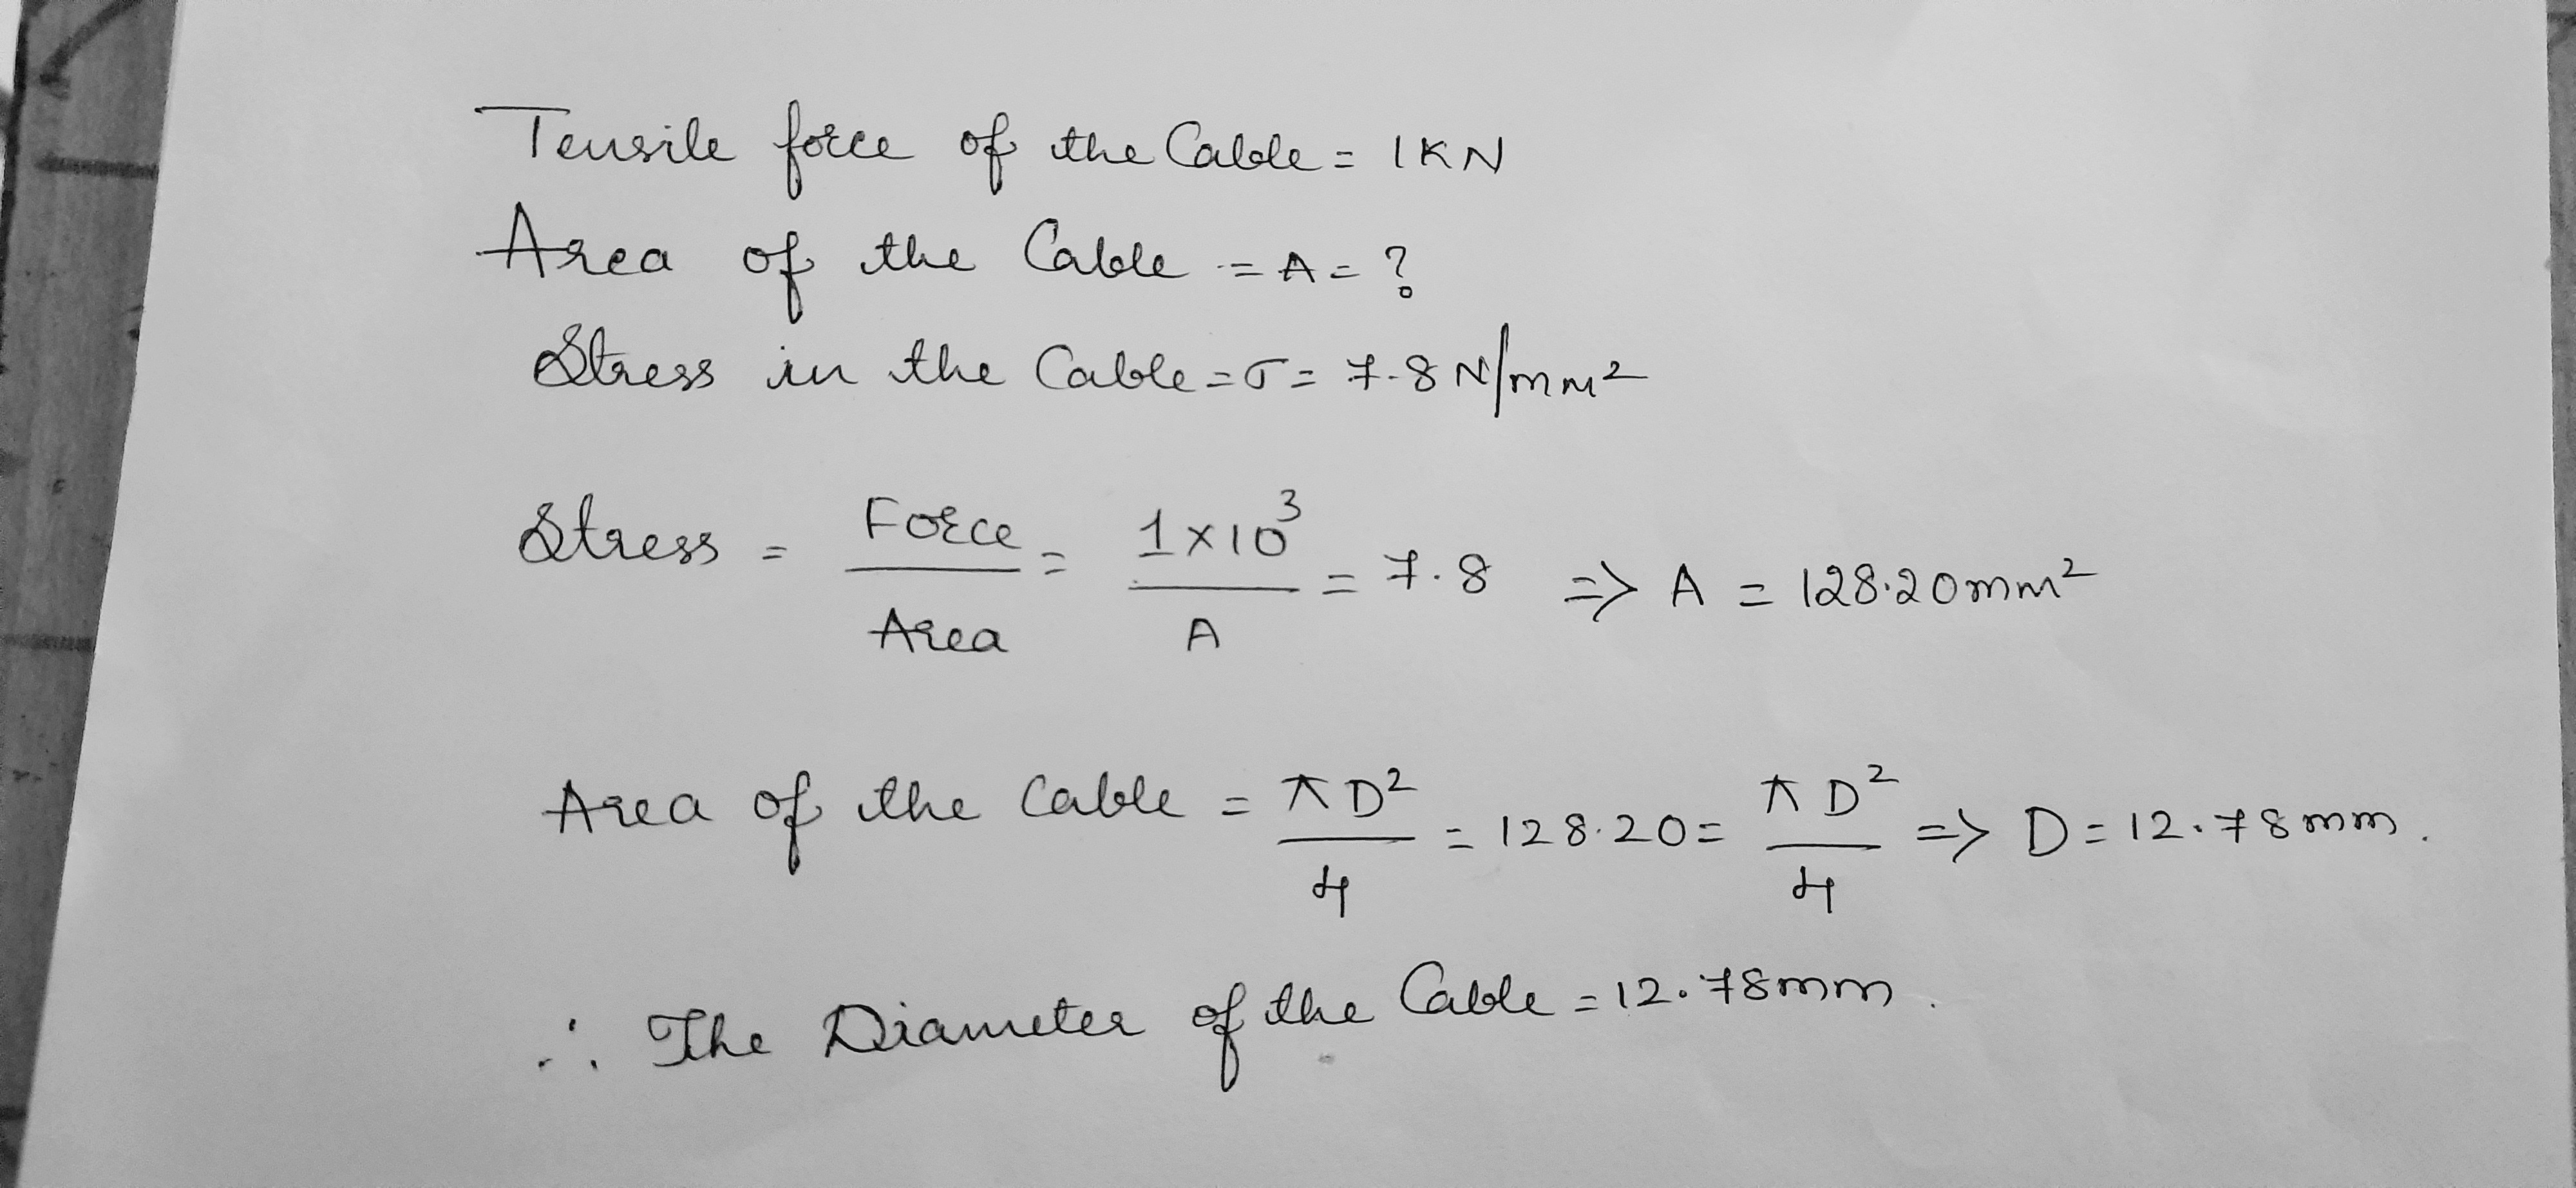 Tensile force of the Cable = 1KN
Area of the Cable = A = ?
Stress in the Cable = σ = 7.8 N/mm²
Stress = Force/Area = 1×10³/A = 7.8 => A = 128.20mm²
Area of the Cable = πD²/4 = 128.20 = πD²/4 => D = 12.78mm.
∴ The Diameter of the Cable = 12.78mm.